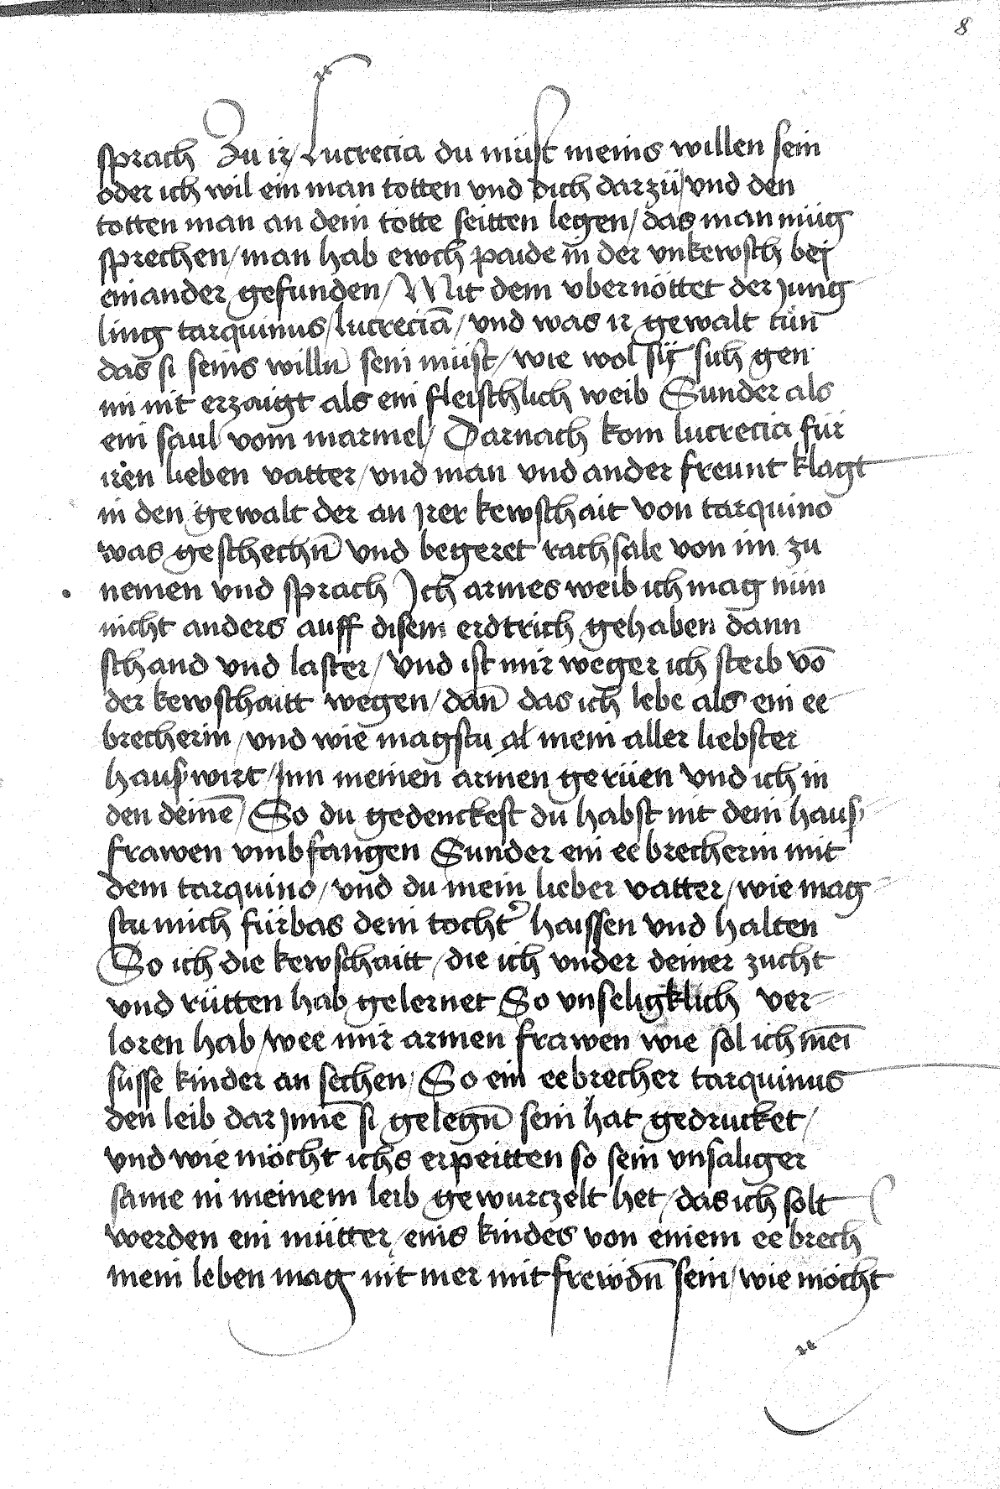 8
sprach Zu ir / Lucrecia du müst meins willen sein
oder ich wil ein man totten vnd dich darzü / vnd den
totten man an dein totte seitten legen / das man müg
sprechen / man hab ewch paide in der vnkewsch bej
einander gefunden / Mit dem vbernöttet der jung
ling tarquinus / lucreciā / vnd was ir gewalt tün
das si seins willn̄ sein müst / wie wol sÿ sich gen
im nit erzaigt als ein fleischlich weib Sunder als
ein saul vom marmel / Darnach kom lucrecia für
iren lieben vatter / vnd man vnd ander freunt klagt
in den gewalt der an jrer kewschait von tarquino
was geschechn̄ vnd begeret rachsale von im zu
nemen vnd sprach Ich armes weib ich mag nün
nicht anders auff disem erdtrich gehaben dann
schand vnd laster / vnd ist mir weger ich sterb vō
der kewschaitt wegen / dan̄ das ich lebe als ein ee
brecherin / vnd wie magstu al mein aller liebster
hauswirt / Inn meinen armen gerüen vnd ich in
den deinē / So du gedenckest du habst nit dein haus
frawen vmbfangen Sunder ein eebrecherin mit
dem tarquino / vnd du mein lieber vatter / wie mag
stu mich fürbas dein tocht᾽ haissen vnd halten
So ich die kewschaitt / die ich vnder deiner zucht
vnd rütten hab gelernet So vnseligklich ver
loren hab / wee mir armen frawen wie sol ich mēi
süsse kinder an sechen / So ein eebrecher tarquinus
den leib dar jnnē si gelegn̄ sein hat gedrucket /
vnd wie möcht ichs erpeitten so sein vnsaliger
same in meinem leib gewurczelt het / das ich solt
werden ein mütter / eins kindes von einem eebrech
mein leben mag nit mer mit frewdn̄ sein / wie möcht